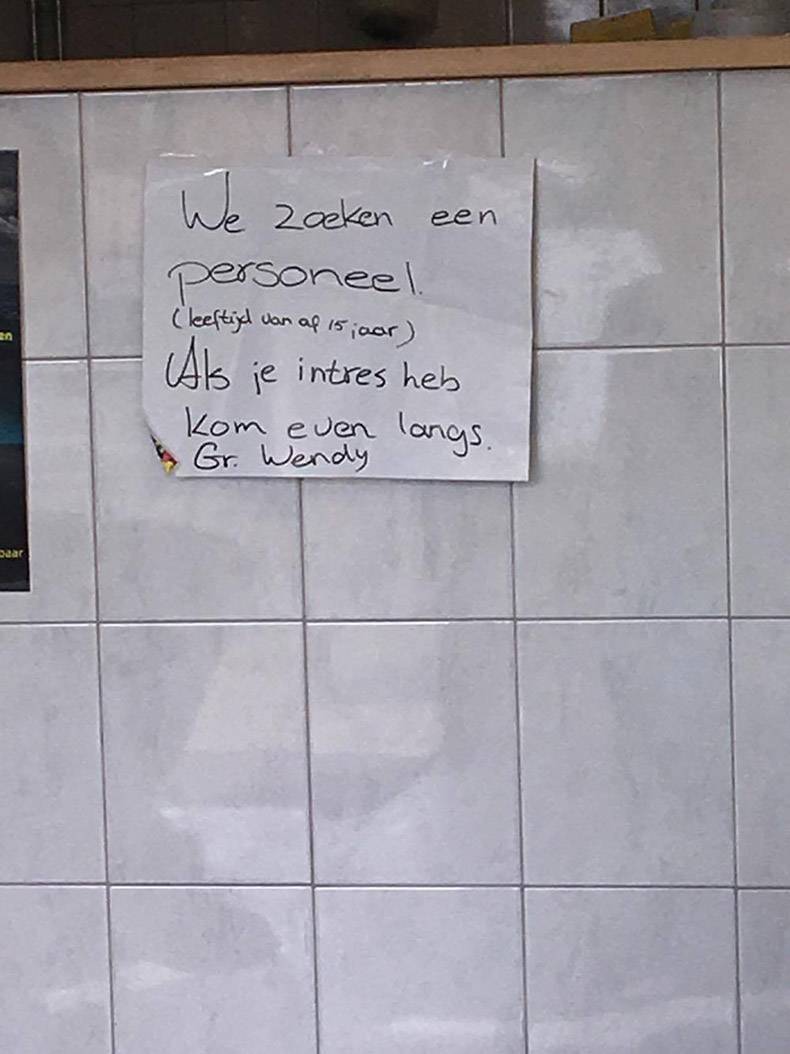 We zoeken een
personeel.
(leeftijd van af 15 jaar)
Als je intres heb
kom even langs.
Gr. Wendy
en
baar